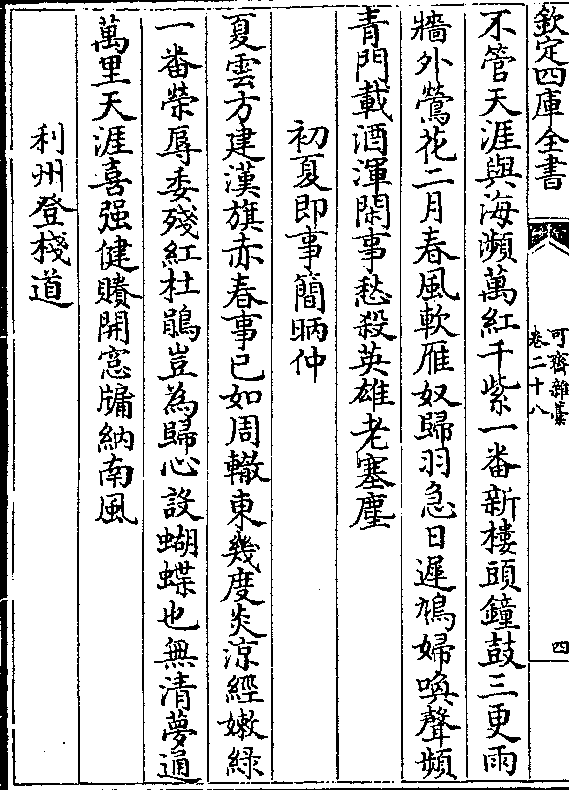 欽定四庫全書
可齋雜藁
卷二十八
四
不管天涯與海瀕萬紅千紫一番新樓頭鐘鼓三更雨
牆外鶯花二月春風軟雁奴歸羽急日遲鳩婦喚聲頻
青門載酒渾閑事愁殺英雄老塞塵
初夏即事簡昞仲
夏雲方建漢旗赤春事已如周轍東幾度炎涼經嫩綠
一番榮辱委殘紅杜鵑豈為歸心設蝴蝶也無清夢通
萬里天涯喜强健賸開窓牖納南風
利州登棧道